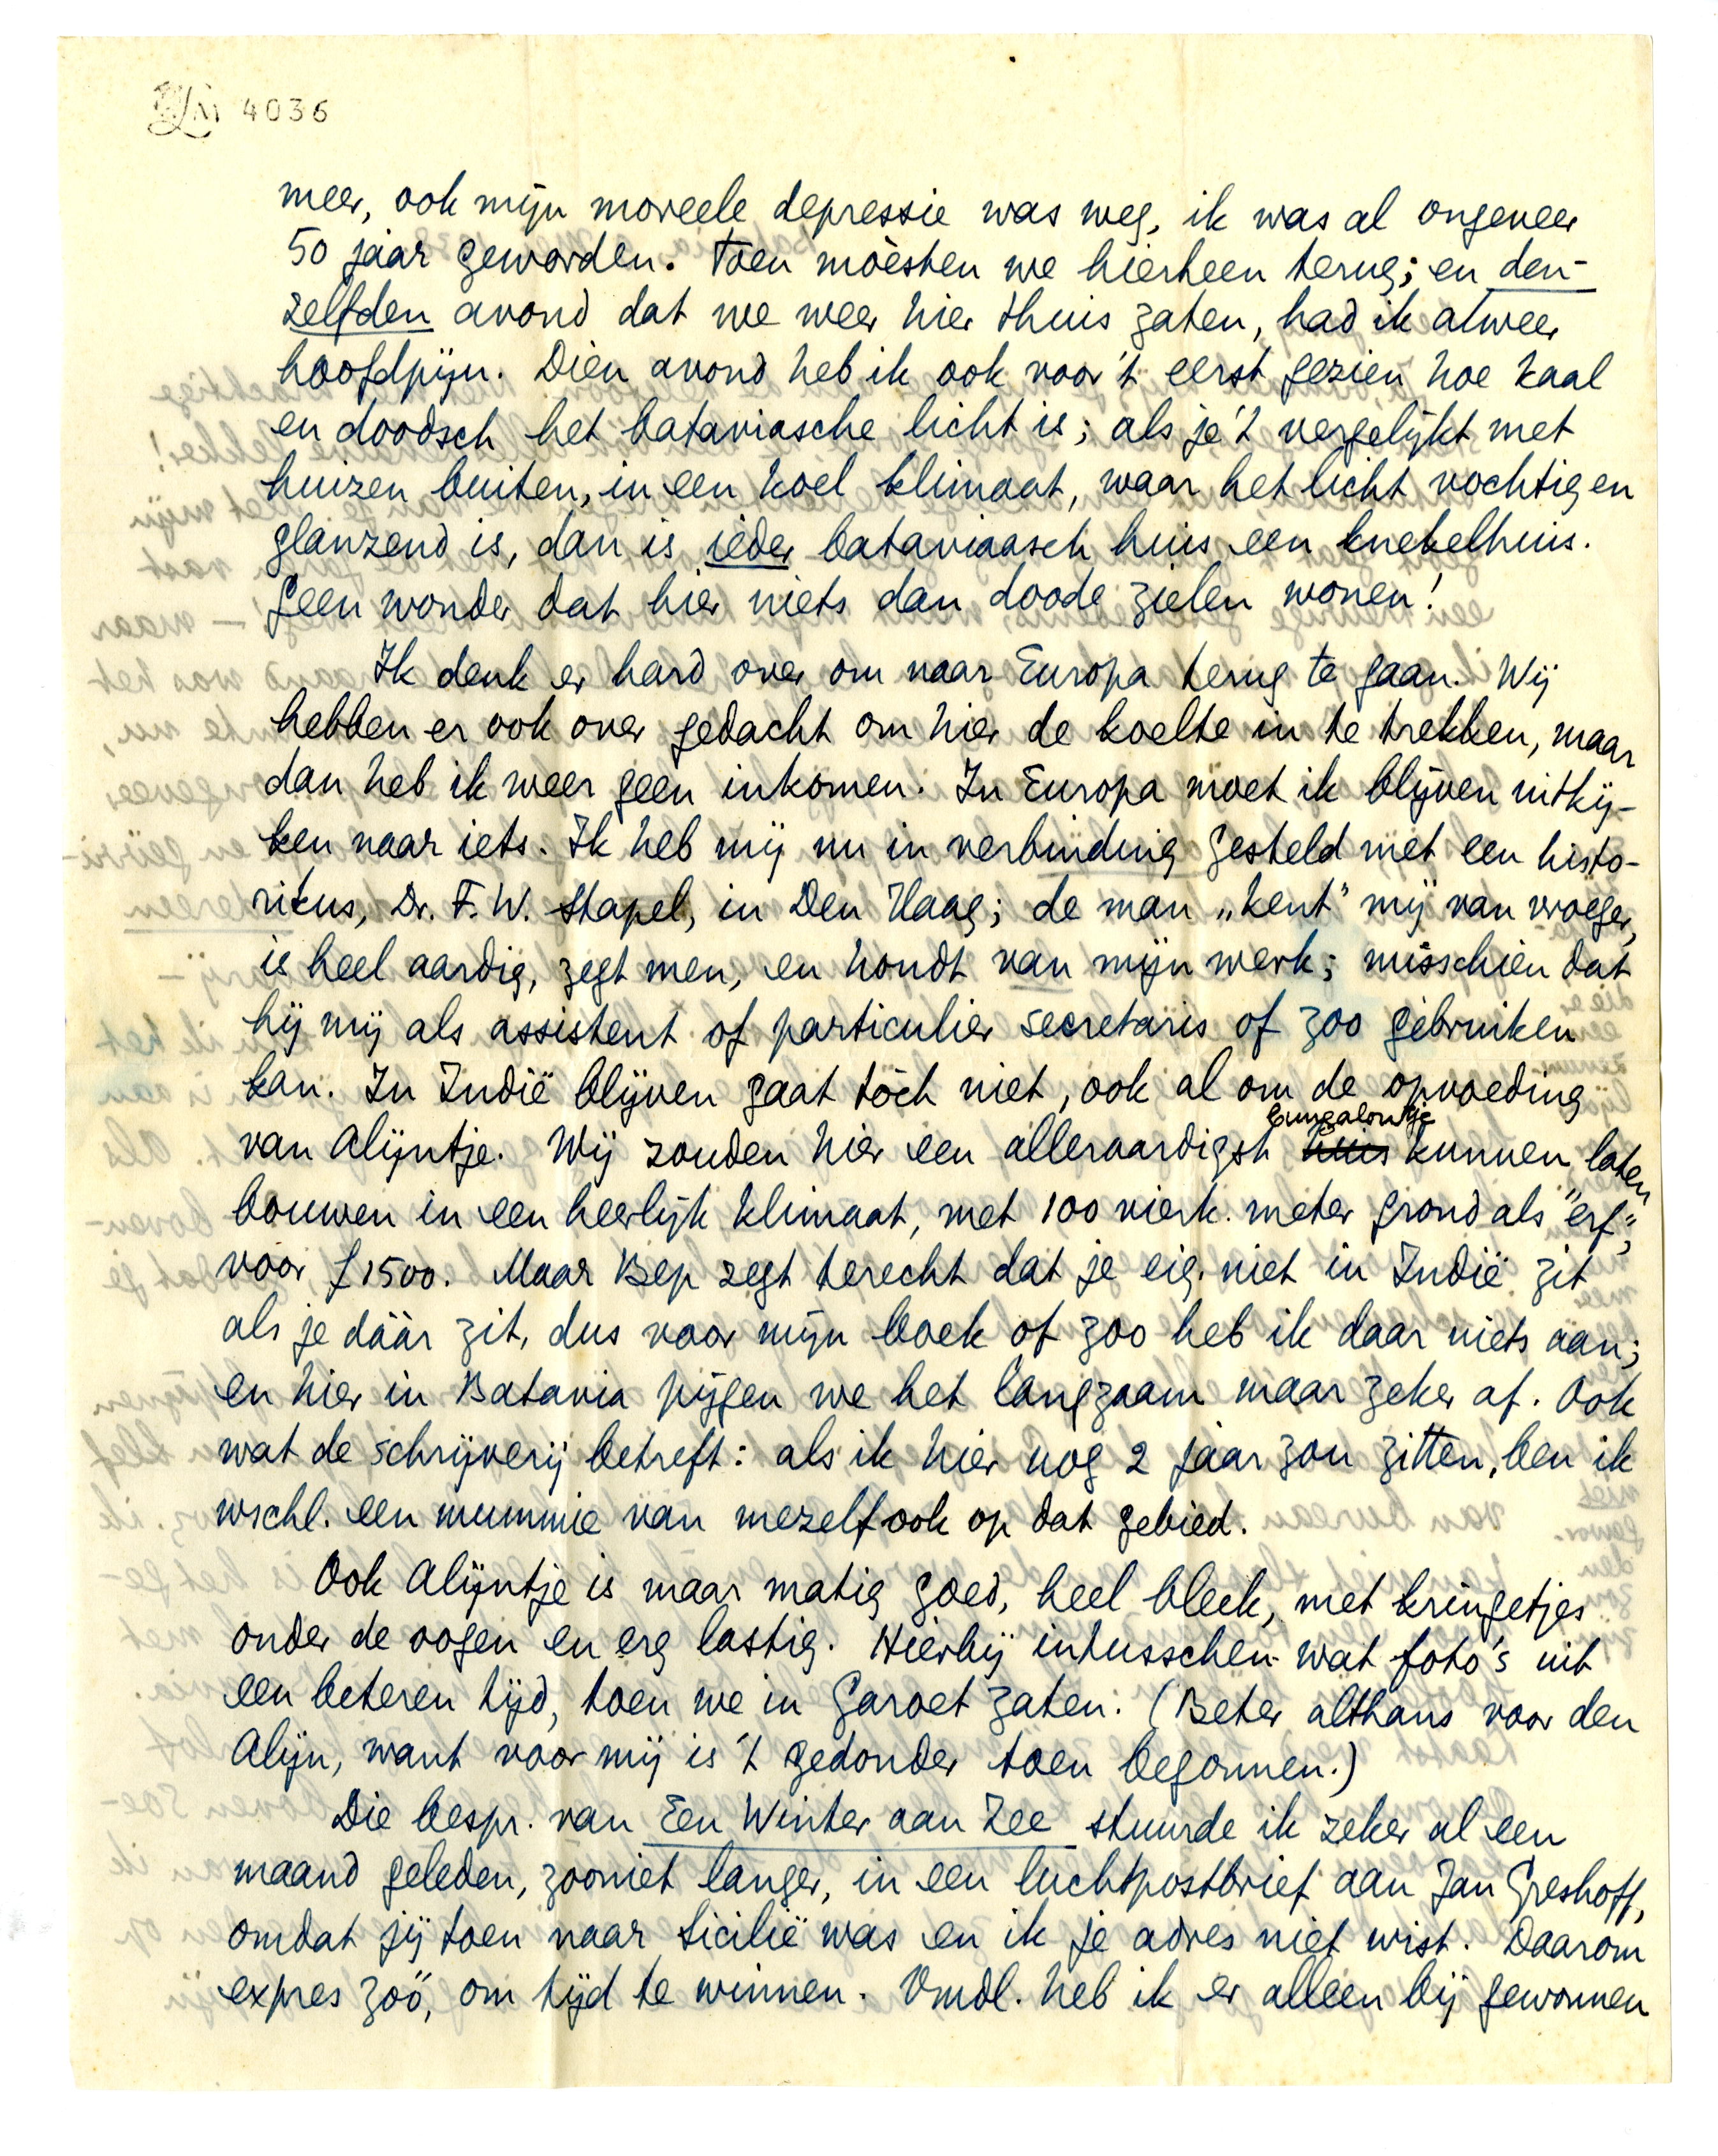 4036
meer, ook mijn moreele depressie was weg, ik was al ongeveer
50 jaar geworden. Toen moèsten we hierheen terug; en den-
zelfden avond dat we weer hier thuis zaten, had ik alweer
hoofdpijn. Dien avond heb ik ook voor 't eerst gezien hoe kaal
en doodsch het bataviasche licht is; als je 't vergelijkt met
huizen buiten, in een koel klimaat, waar het licht vochtig en
glanzend is, dan is ieder bataviaasch huis een knekelhuis.
Geen wonder dat hier niets dan doode zielen wonen!
Ik denk er hard over om naar Europa terug te gaan. Wij
hebben er ook over gedacht om hier de koelte in te trekken, maar
dan heb ik weer geen inkomen. In Europa moet ik blijven uitkij-
ken naar iets. Ik heb mij nu in verbinding gesteld met een histo-
ricus, Dr. F. W. Stapel, in Den Haag; de man „kent" mij van vroeger,
is heel aardig, zegt men, en houdt van mijn werk; misschien dat
hij mij als assistent of particulier secretaris of zoo gebruiken
kan. In Indië blijven gaat tòch niet, ook al om de opvoeding
van Alijntje. Wij zouden hier een alleraardigst huis bungalowtje kunnen laten
bouwen in een heerlijk klimaat, met 100 vierk. meter grond als "erf",
voor f 1500. Maar Bep zegt terecht dat je eig. niet in Indië zit
als je dààr zit, dus voor mijn boek of zoo heb ik daar niets aan;
en hier in Batavia pijgen we het langzaam maar zeker af. Ook
wat de schrijverij betreft: als ik hier nog 2 jaar zou zitten, ben ik
wschl. een mummie van mezelf ook op dat gebied.
Ook Alijntje is maar matig goed, heel bleek, met kringetjes
onder de oogen en erg lastig. Hierbij intusschen wat foto's uit
een beteren tijd, toen we in Garoet zaten. (Beter althans voor den
Alijn, want voor mij is 't gedonder toen begonnen.)
Die bespr. van Een Winter aan Zee stuurde ik zeker al een
maand geleden, zooniet langer, in een luchtpostbrief aan Jan Greshoff,
omdat jij toen naar Sicilië was en ik je adres niet wist. Daarom
expres zoo, om tijd te winnen. Vmdl. heb ik er alleen bij gewonnen